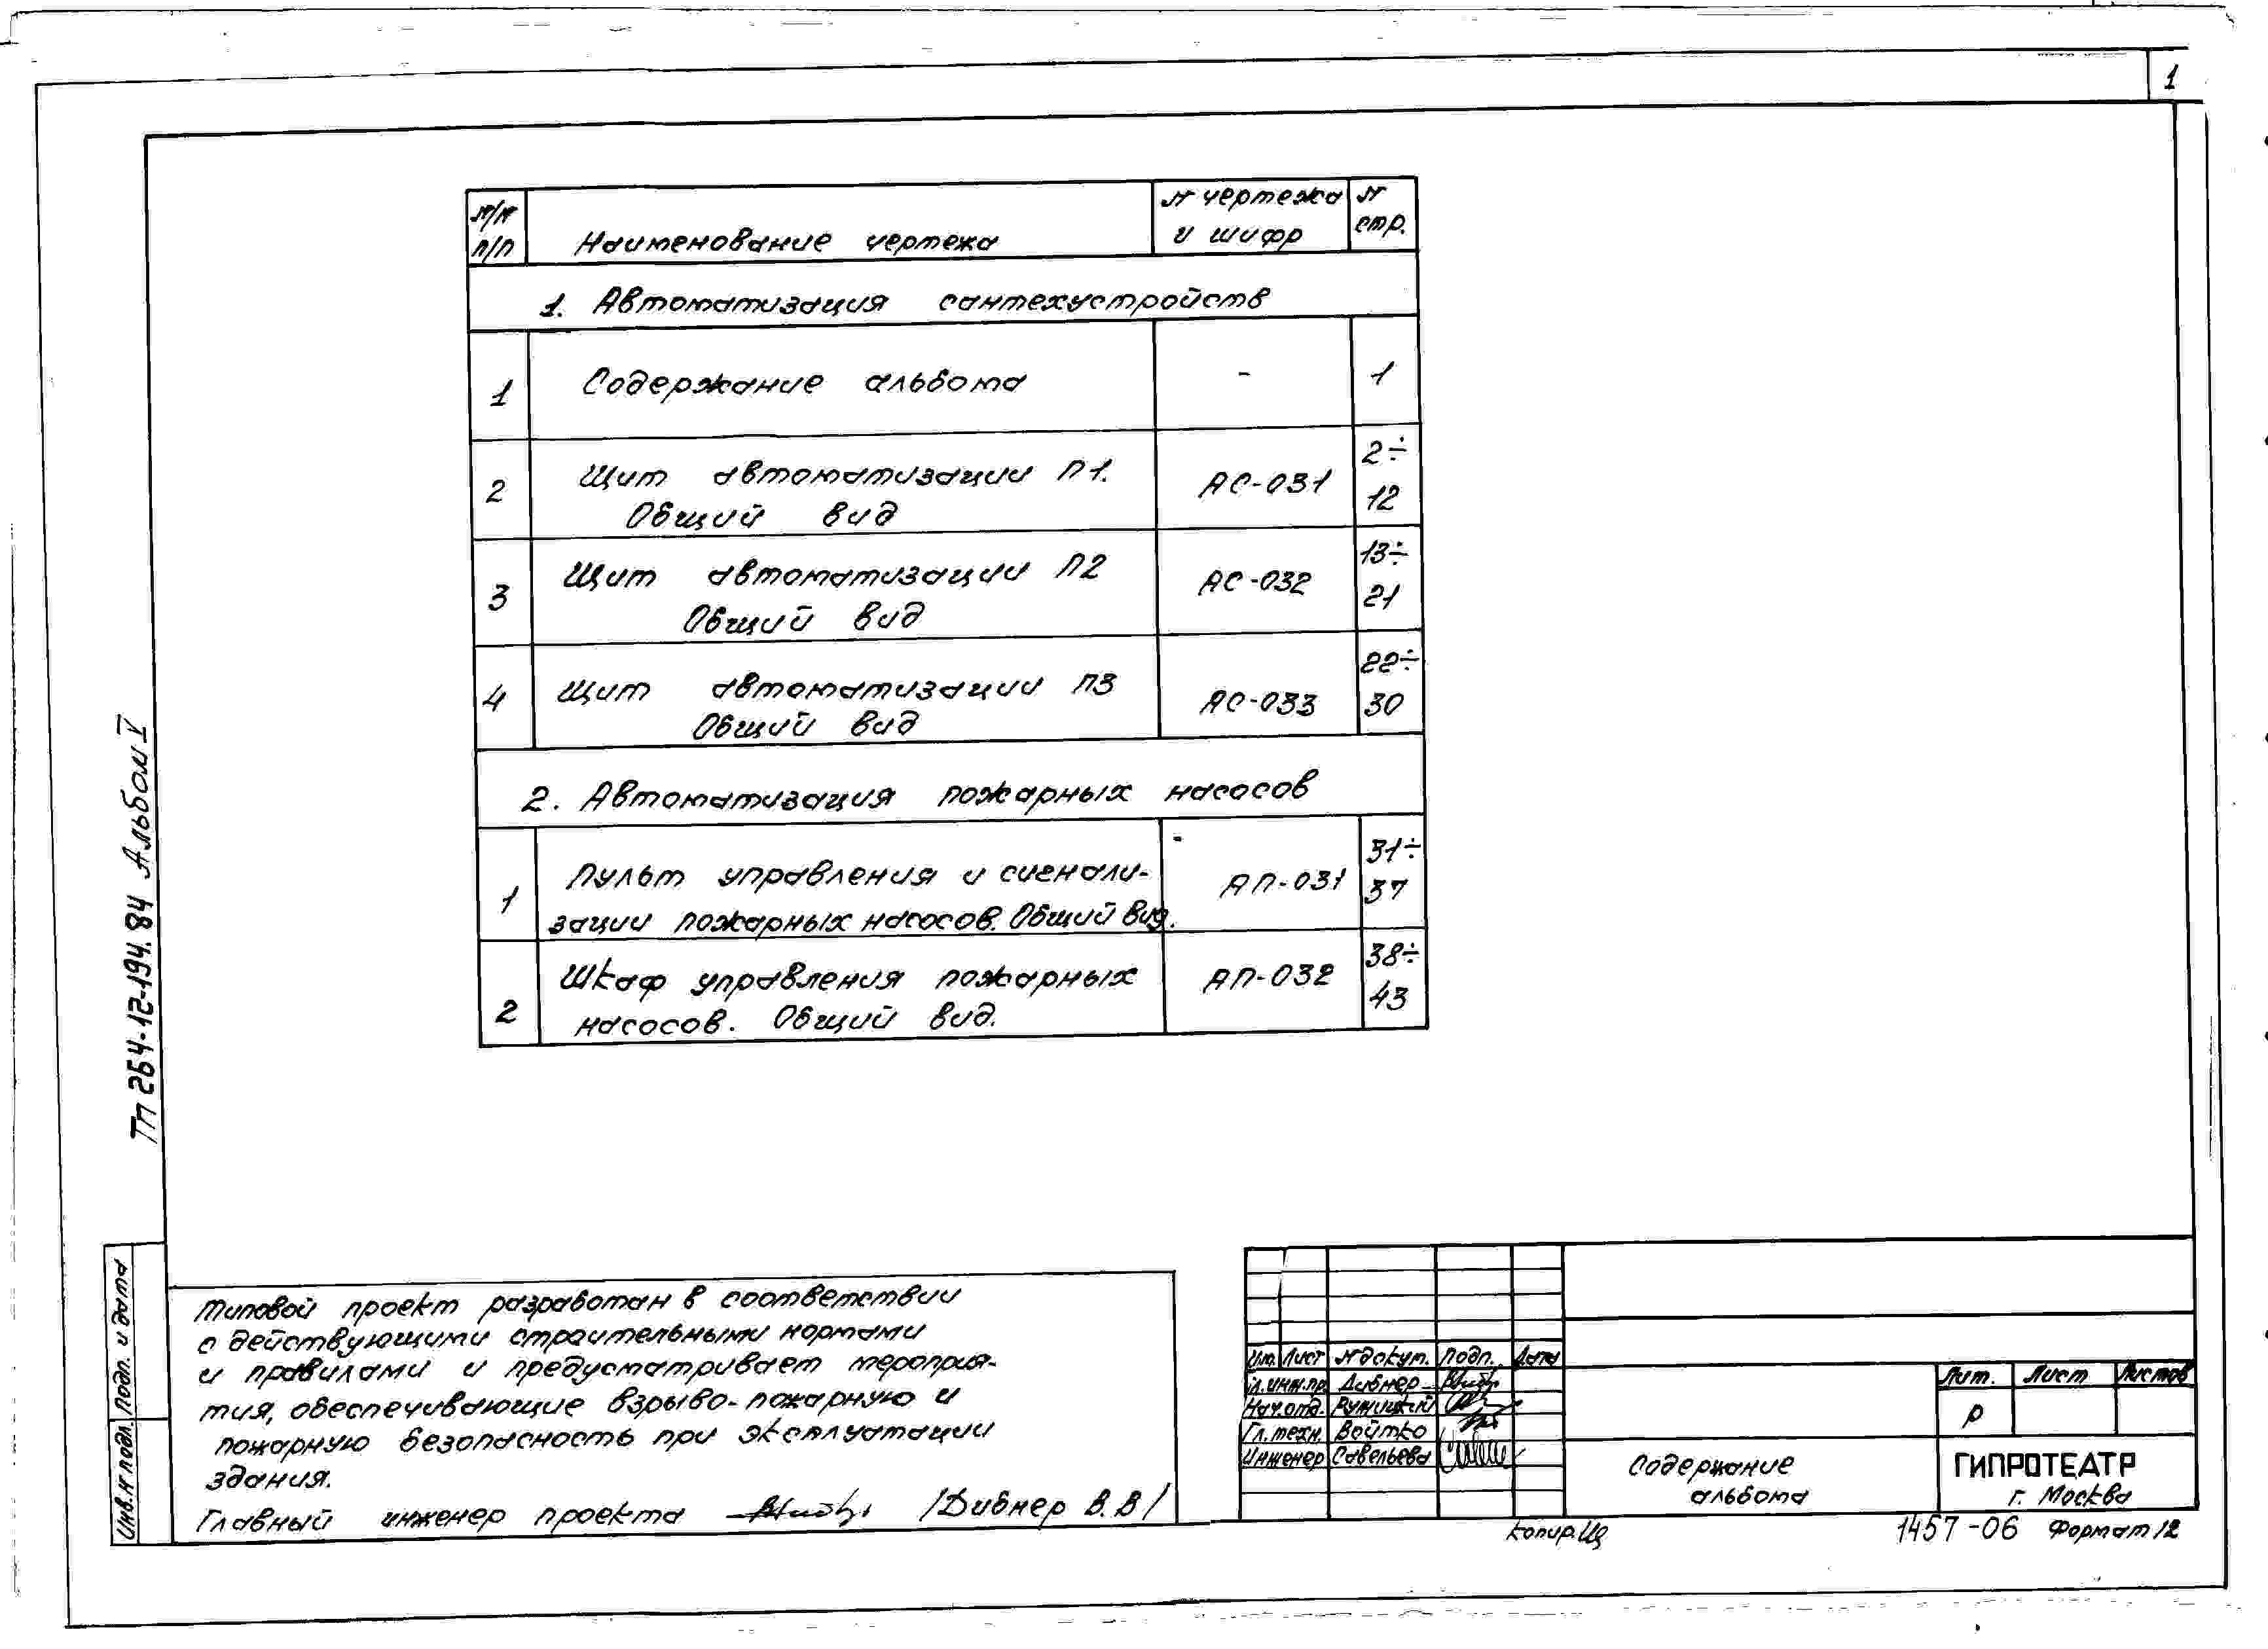 1
N/N
п/п
Наименование чертежа
N чертежа
и шифр
N
стр.
1. Автоматизация сантехустройств
1
Содержание альбома
-
1
2
Щит автоматизации П1.
Общий вид
АС-031
2÷
12
3
Щит автоматизации П2
Общий вид
АС-032
13÷
21
4
Щит автоматизации П3
Общий вид
АС-033
22÷
30
2. Автоматизация пожарных насосов
1
Пульт управления и сигнали-
зации пожарных насосов. Общий вид.
АП-031
31÷
37
2
Шкаф управления пожарных
насосов. Общий вид.
АП-032
38÷
43
Тп 264-12-194.84 Альбом V
Инв. N подл. Подп. и дата
Типовой проект разработан в соответствии
с действующими строительными нормами
и правилами и предусматривает мероприя-
тия, обеспечивающие взрыво-пожарную и
пожарную безопасность при эксплуатации
здания.
Главный инженер проекта /Дибнер В.В/
Изм. Лист N докум. Подп. Дата
Гл.инж.пр. Дибнер
Нач.отд. Ружицкий
Гл.техн. Войтко
Инженер Савельева
Лит. Лист Листов
Р
Содержание
альбома
ГИПРОТЕАТР
г. Москва
Копир. Щ
1457-06 Формат 12